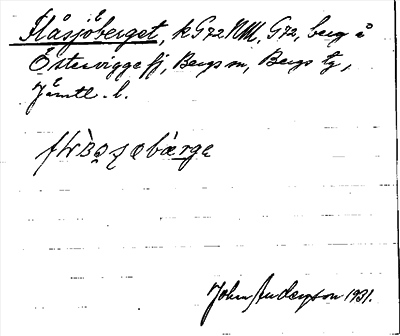 Flåsjöberget, k G72 NM, G72, berg å
Östervigge fj, Bergs sn, Bergs tg,
Jämtl. l.
John Anderzson 1931.